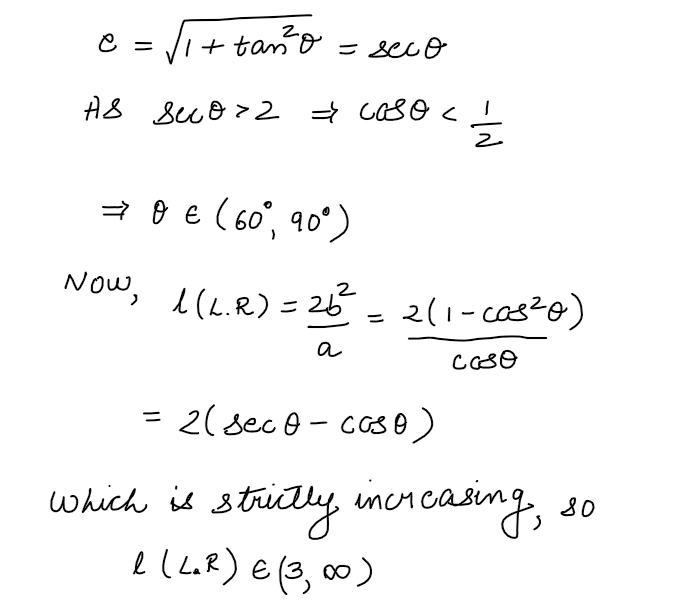 e = √(1 + tan²θ) = secθ
As secθ > 2 ⇒ cosθ < 1/2
⇒ θ ∈ (60°, 90°)
Now, l(L.R) = 2b²/a = 2(1 - cos²θ)/cosθ
= 2(secθ - cosθ)
which is strictly increasing, so
l(L.R) ∈ (3, ∞)